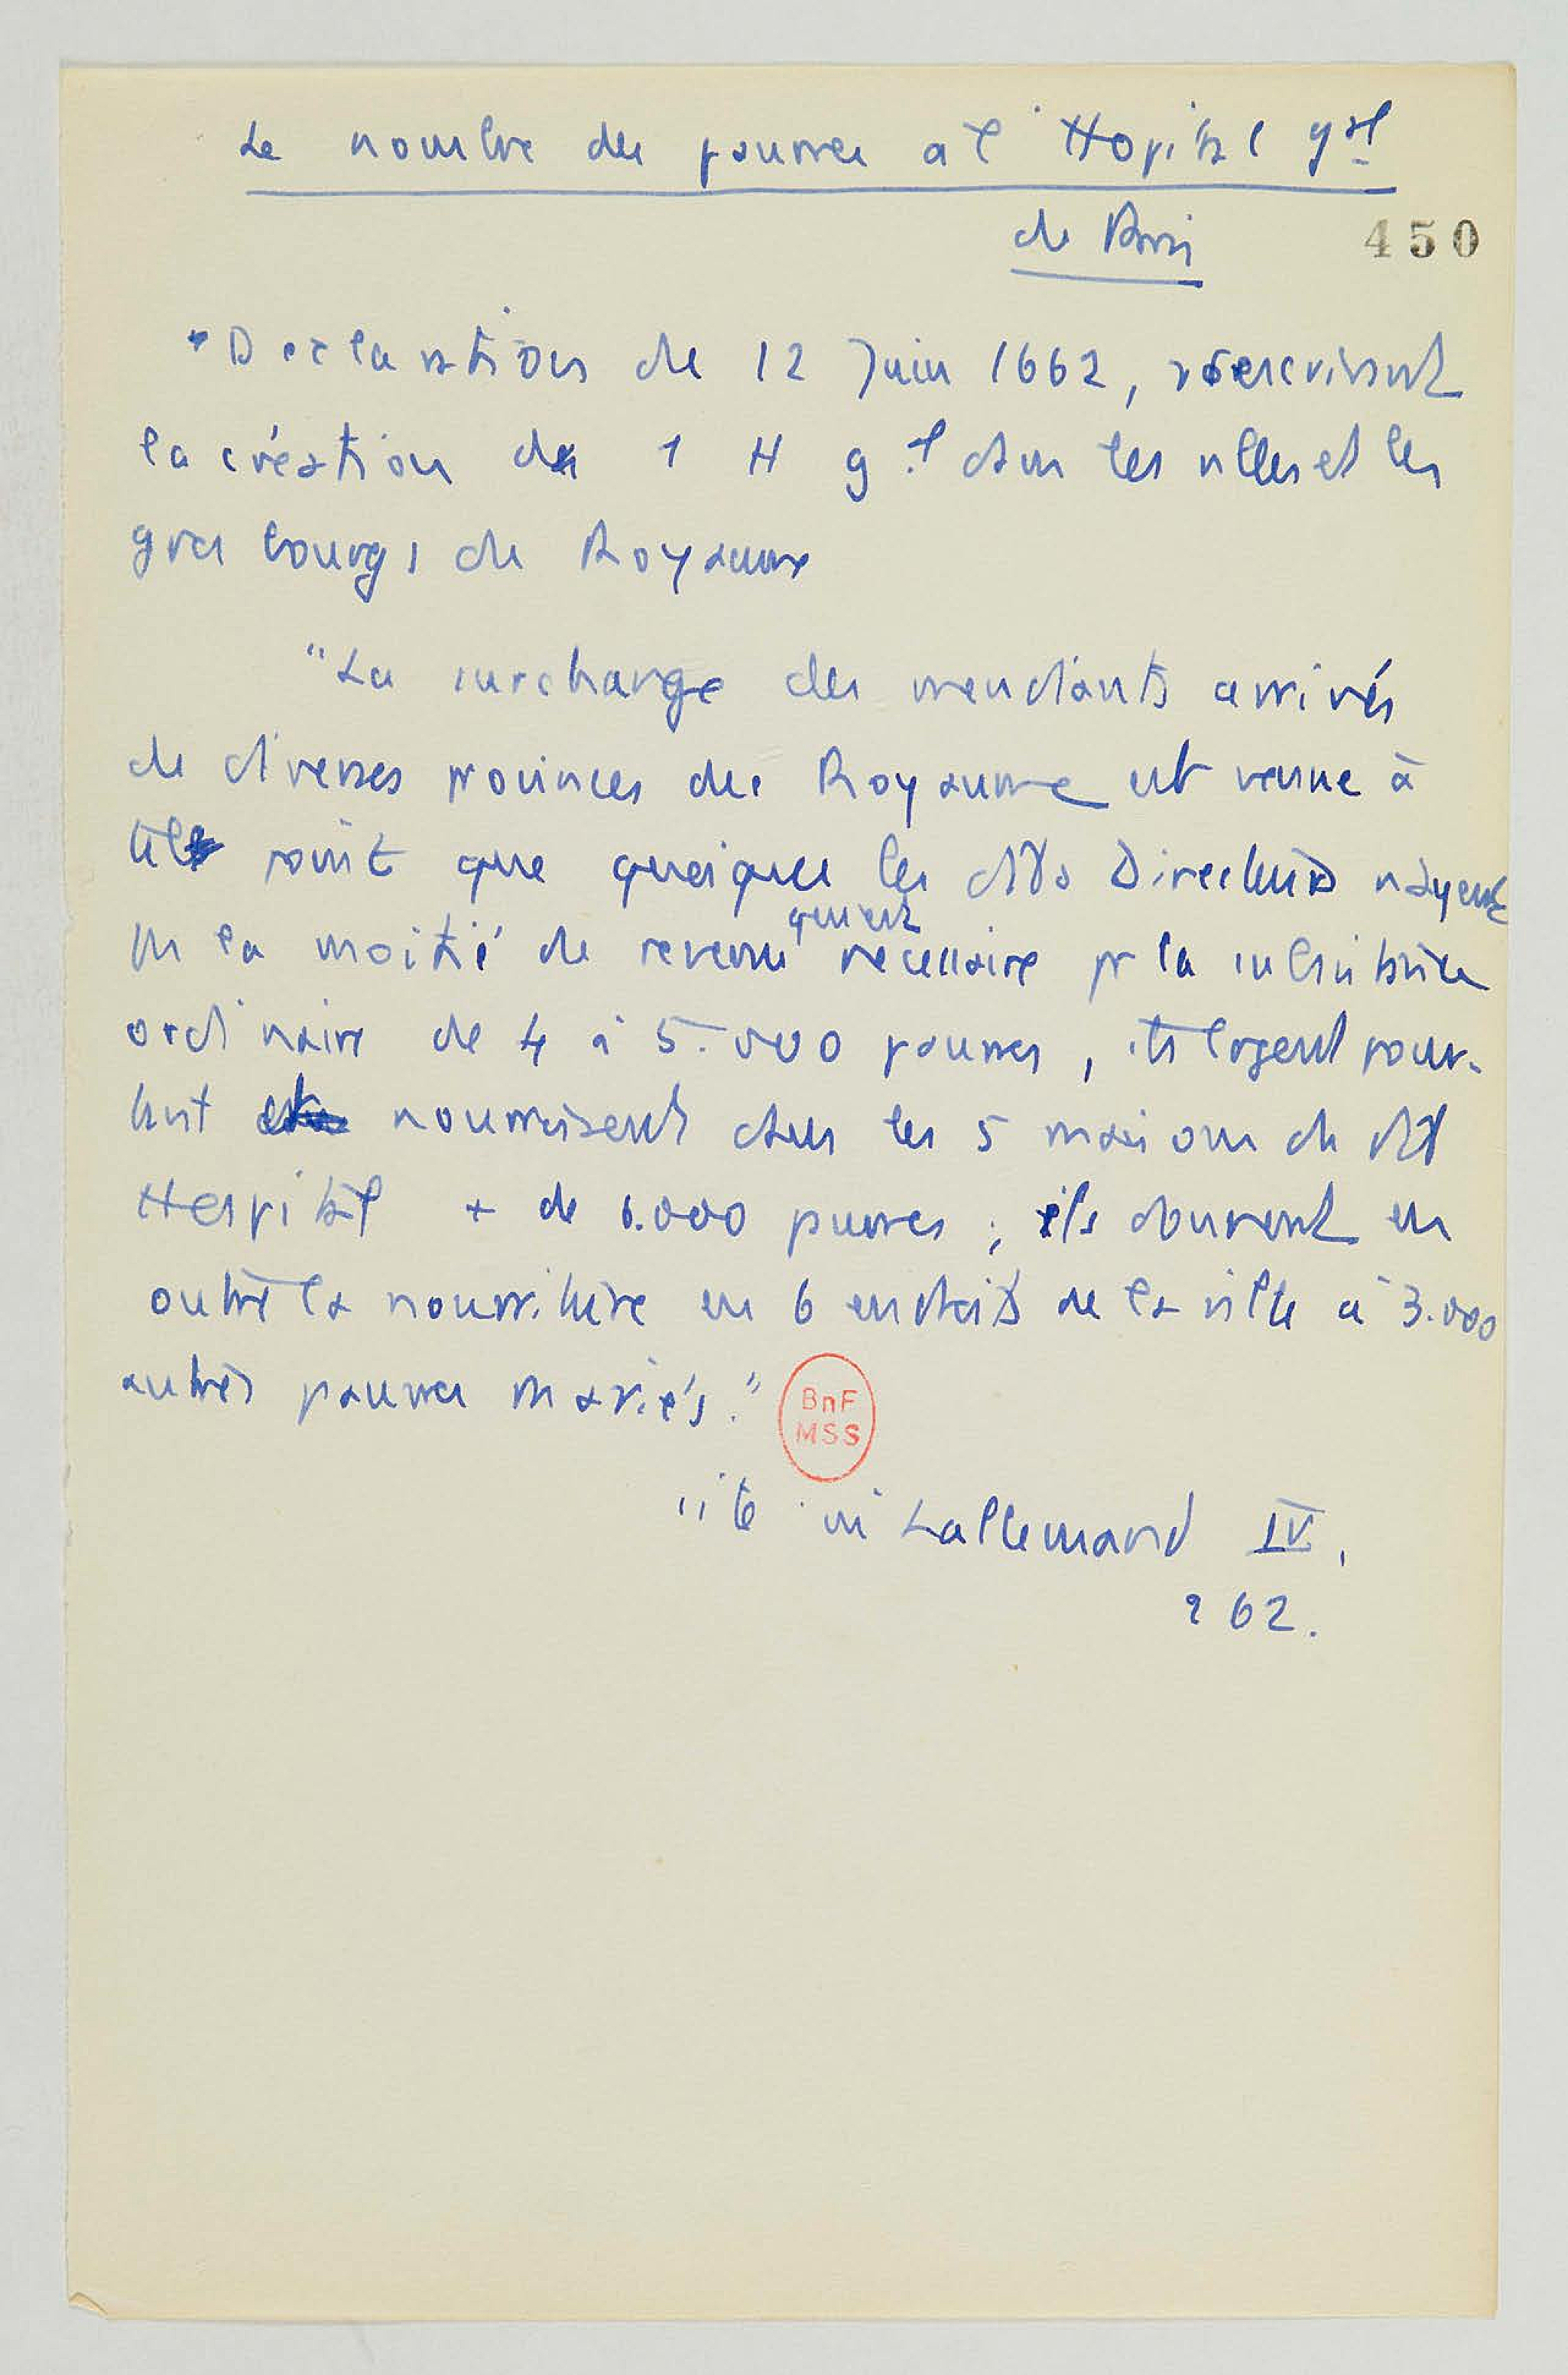 Le nombre des pauvres à l'Hopital gal
de Paris
450
"Declaration du 12 Juin 1662, prescrivant
la création de 1 H gl dans les villes et les
gros bourgs du Royaume
"La surcharge des mendiants arrivés
de diverses provinces du Royaume est venue à
tel point que quoique les dits Directeurs n'ayent
pas la moitié du revenu qui est necessaire pr la subsistance
ordinaire de 4 à 5.000 pauvres, ils logent pour-
tant nourrissent dans les 5 maisons du dit
Hospital + de 6.000 pauvres ; ils donnent en
outre la nourriture en 6 endroits de la ville à 3.000
autres pauvres mariés."
BnF
MSS
cité in Lallemand IV,
262.